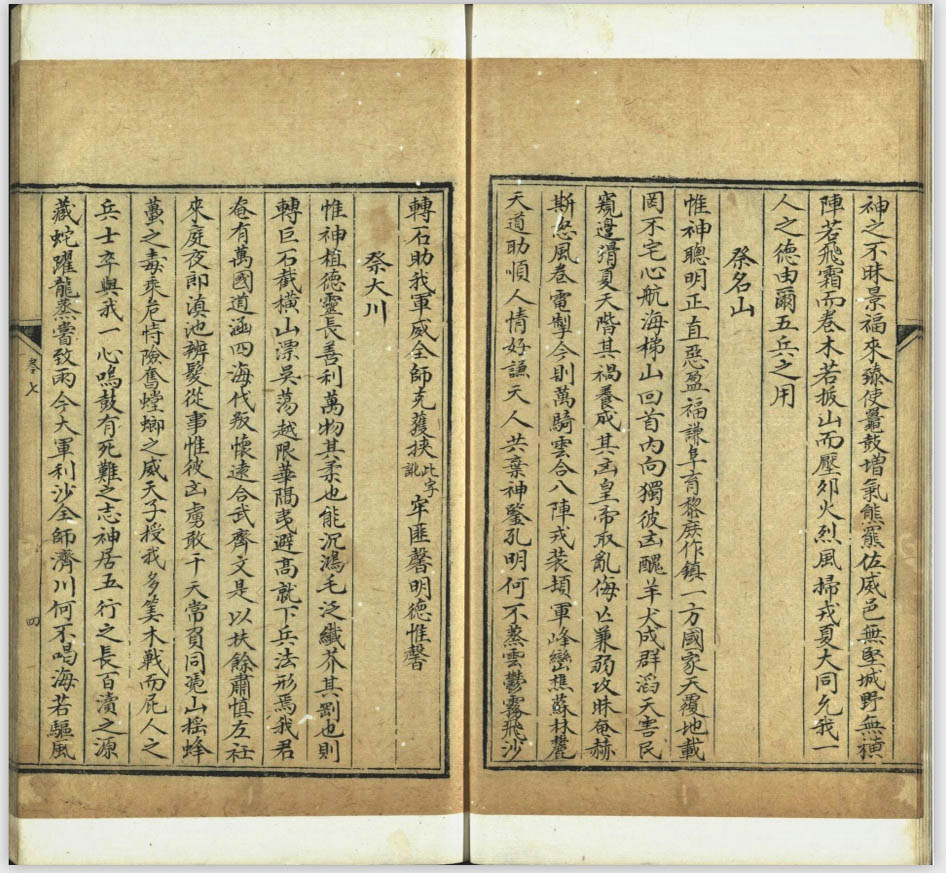 神之不昧景福來臻使鼉鼓增氣熊羆佐威邑無堅城野無橫
陣若飛霜而卷木若扳山而壓邜火烈風掃戎夏大同允我一
人之德由爾五兵之用
祭名山
惟神聰明正直惡盈福謙阜育黎庶作鎮一方國家天覆地載
罔不宅心航海梯山回首内向獨彼凶醜羊犬成群滔天害民
窺邊猾夏天階其禍養成其凶皇帝取亂侮亡兼弱攻昧奄赫
斯怒風卷電掣今則萬騎雲合八陣戎装頓軍峰巒樵蘇林麓
天道助順人情好謙天人共棄神鑒孔明何不蒸雲鬱霧飛沙
轉石助我軍威全師克獲挾此字訛牢匪馨明德惟馨
祭大川
惟神植德靈長善利萬物其柔也能沉鴻毛泛纖芥其剛也則
轉巨石截横山漂吳蕩越限華隔夷避高就下兵法形焉我君
奄有萬國道涵四海伐叛懷遠合武齊文是以扶餘肅慎左衽
來庭夜郎滇池辨髮從事惟彼凶虜敢干天常負同兎山揺蜂
蠆之毒乘危恃險奮螳螂之威天子授我多筭未戰而屁人之
兵士卒與我一心鳴鼓有死難之志神居五行之長百瀆之源
藏蛇躍龍蒸霽致雨今大軍利沙全師濟川何不喝海若驅風
卷七
四